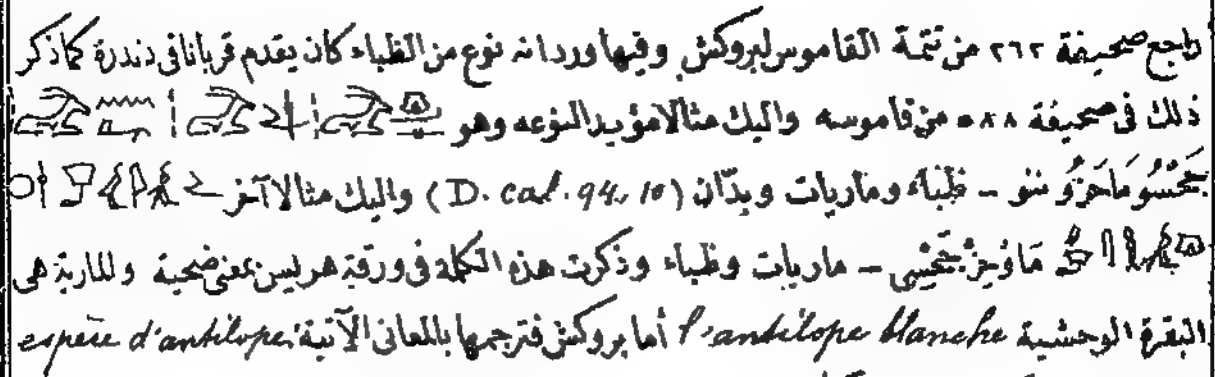 راجع صحيفة ٢٦٢ من تتمة القاموس لبروكش وفيها ورد انه نوع من الظباء كان يقدم قربانا فى دندرة كما ذكر
ذلك فى صحيفة ٥٨٨ من قاموسه واليك مثالا مؤيدا لنوعه وهو
ماحز ننو - ظباء وماريات وبدّان (D. cal. 94, 10) واليك مثالا آخر
- ماريات وظباء وذكرت هذه الكلمة فى ورقة هريس بمعنى ضحية وللمارية هى
البقرة الوحشية l'antilope blanche أما بروكش فترجمها بالمعانى الآتية: espèce d'antilope